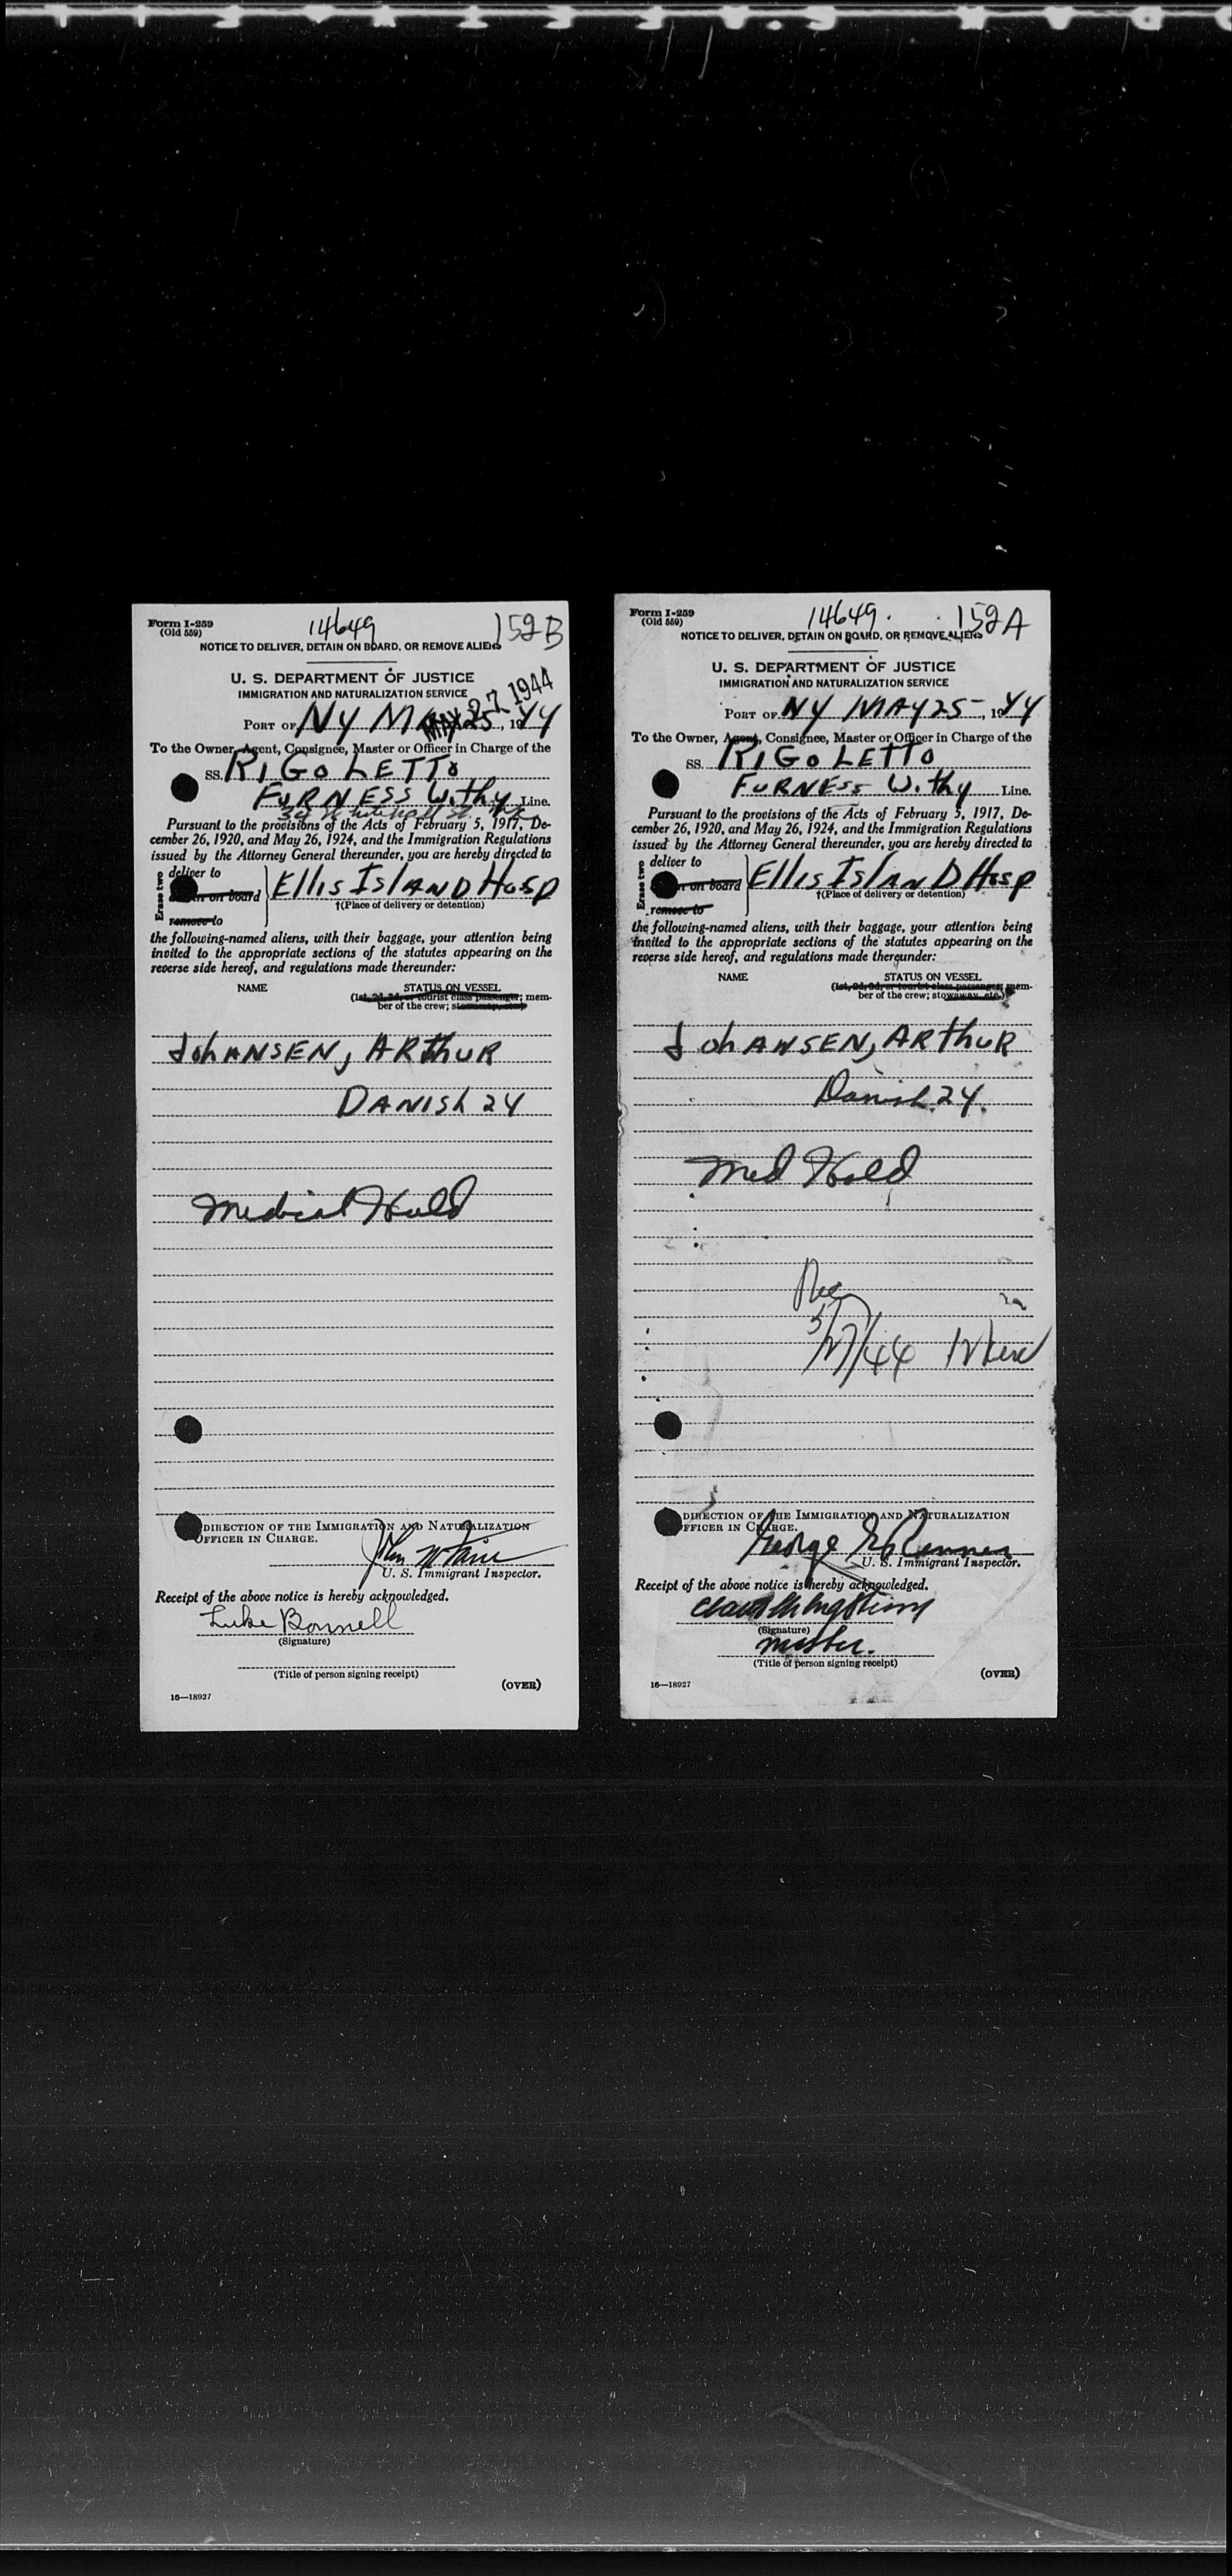 Form I-259
(Old 559)
14649
152B
NOTICE TO DELIVER, DETAIN ON BOARD, OR REMOVE ALIENS
U. S. DEPARTMENT OF JUSTICE
IMMIGRATION AND NATURALIZATION SERVICE
MAY 27 1944
PORT OF NY MAY 25, 1944
To the Owner, Agent, Consignee, Master or Officer in Charge of the
SS. RIGOLETTO
FURNESS Withy Line.
34 Whitehall St.
Pursuant to the provisions of the Acts of February 5, 1917, De-
cember 26, 1920, and May 26, 1924, and the Immigration Regulations
issued by the Attorney General thereunder, you are hereby directed to
Erase two
deliver to
on board
remove to
Ellis ISLAND Hosp
†(Place of delivery or detention)
the following-named aliens, with their baggage, your attention being
invited to the appropriate sections of the statutes appearing on the
reverse side hereof, and regulations made thereunder:
NAME
STATUS ON VESSEL
(1st, 2d, 3d, or tourist class passenger; mem-
ber of the crew; stowaway, etc.)
JohANSEN, ARthuR
DANISh 24
Medical Hold
DIRECTION OF THE IMMIGRATION AND NATURALIZATION
OFFICER IN CHARGE.
John
U. S. Immigrant Inspector.
Receipt of the above notice is hereby acknowledged.
Luke Bonnell
(Signature)
(Title of person signing receipt)
(OVER)
16—18927
Form I-259
(Old 559)
14649.
152A
NOTICE TO DELIVER, DETAIN ON BOARD, OR REMOVE ALIENS
U. S. DEPARTMENT OF JUSTICE
IMMIGRATION AND NATURALIZATION SERVICE
PORT OF NY MAY 25, 1944
To the Owner, Agent, Consignee, Master or Officer in Charge of the
SS. RIGOLETTO
FURNESS Withy Line.
Pursuant to the provisions of the Acts of February 5, 1917, De-
cember 26, 1920, and May 26, 1924, and the Immigration Regulations
issued by the Attorney General thereunder, you are hereby directed to
Erase two
deliver to
on board
remove to
Ellis IslAND Hosp
†(Place of delivery or detention)
the following-named aliens, with their baggage, your attention being
invited to the appropriate sections of the statutes appearing on the
reverse side hereof, and regulations made thereunder:
NAME
STATUS ON VESSEL
(1st, 2d, 3d, or tourist class passenger; mem-
ber of the crew; stowaway, etc.)
JohANSEN, ARthuR
Danish 24.
Med Hold
Rec
5/27/44
DIRECTION OF THE IMMIGRATION AND NATURALIZATION
OFFICER IN CHARGE.
George
U. S. Immigrant Inspector.
Receipt of the above notice is hereby acknowledged.
(Signature)
Master.
(Title of person signing receipt)
(OVER)
16—18927